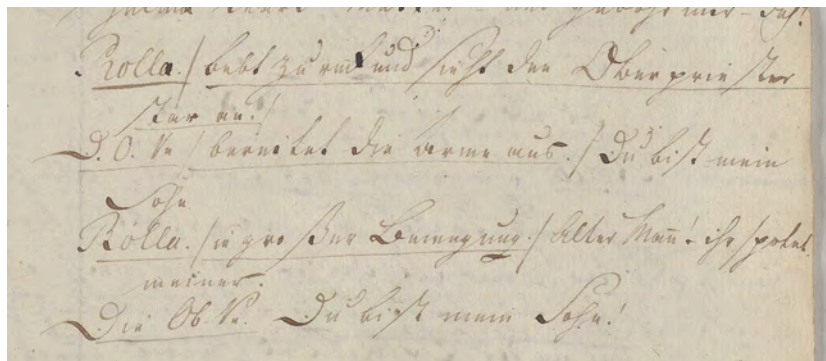 Rolla. / bebt zurük und sieht den Oberpriester
star an. /
D. O. Pr / breitet die Arme aus. / Du bist mein
Sohn
Rolla. / in großer Bewegung. / Alter Mañ! ihr spotet
meiner.
Die Ob. Pr. Du bist mein Sohn!